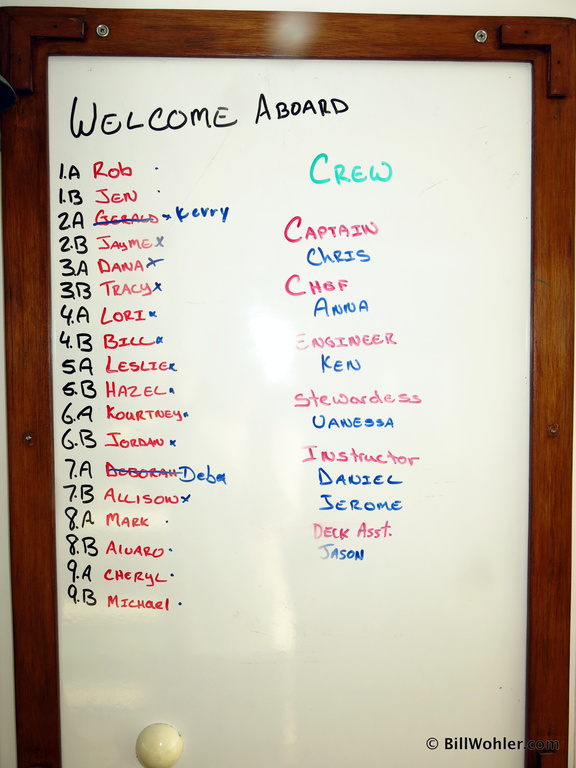 WELCOME ABOARD
1.A Rob
1.B JEN
2.A GERALD x Kerry
2.B JAYME x
3.A DANA x
3.B TRACY x
4.A LORI x
4.B BILL x
5A LESLIE x
5.B HAZEL
6.A KOURTNEY
6.B JORDAN x
7.A DEBORAH Deba
7.B ALLISON x
8.A MARK
8.B Alvaro
9.A CHERYL
9.B MICHael
CREW
CAPTAIN
CHRIS
CHEF
ANNA
ENGINEER
KEN
Stewardess
VANESSA
Instructor
DANIEL
JEROME
DECK Asst.
JASON
© BillWohler.com